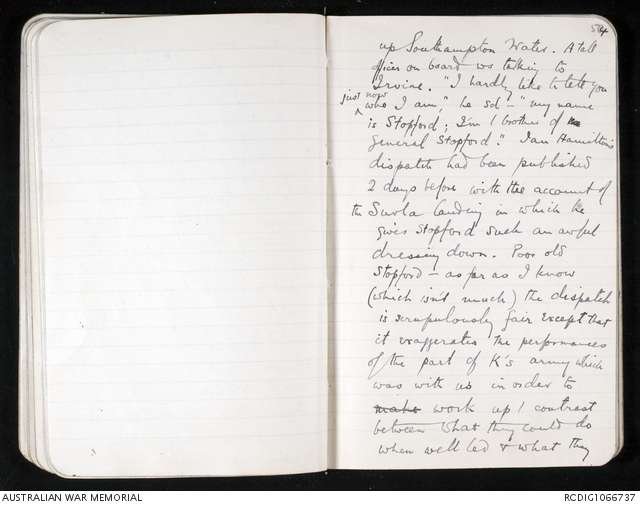 54
up Southampton Water. A tall
officer on board ws talking to
Irvine. "I hardly like to tell you
just now
who I am," he sd - "my name
is Stopford; I'm / brother of
General Stopford." Ian Hamilton's
dispatch had been published
2 days before with the account of
the Suvla landing in which he
gives Stopford such an awful
dressing down. Poor old
Stopford - as far as I know
(which isn't much) the dispatch
is scrupulously fair except that
it exaggerates the performances
of the part of K's army which
was with us in order to
make work up / contrast
between what they could do
when well led & what they
AUSTRALIAN WAR MEMORIAL
RCDIG1066737